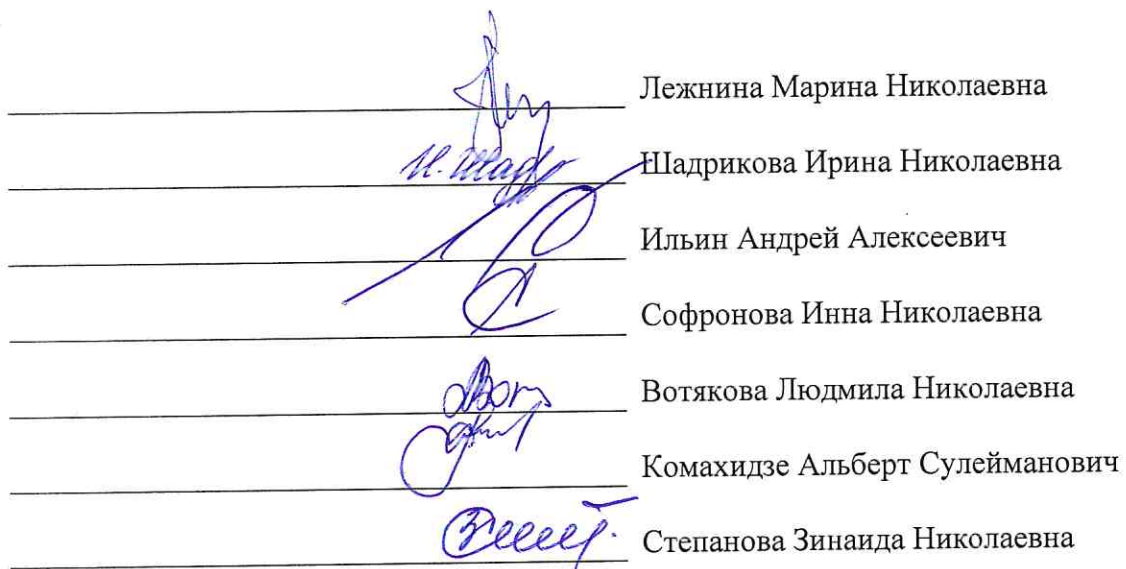 Лежнина Марина Николаевна
И. Шадр Шадрикова Ирина Николаевна
Ильин Андрей Алексеевич
Софронова Инна Николаевна
Вотякова Людмила Николаевна
Комахидзе Альберт Сулейманович
Степанова Зинаида Николаевна